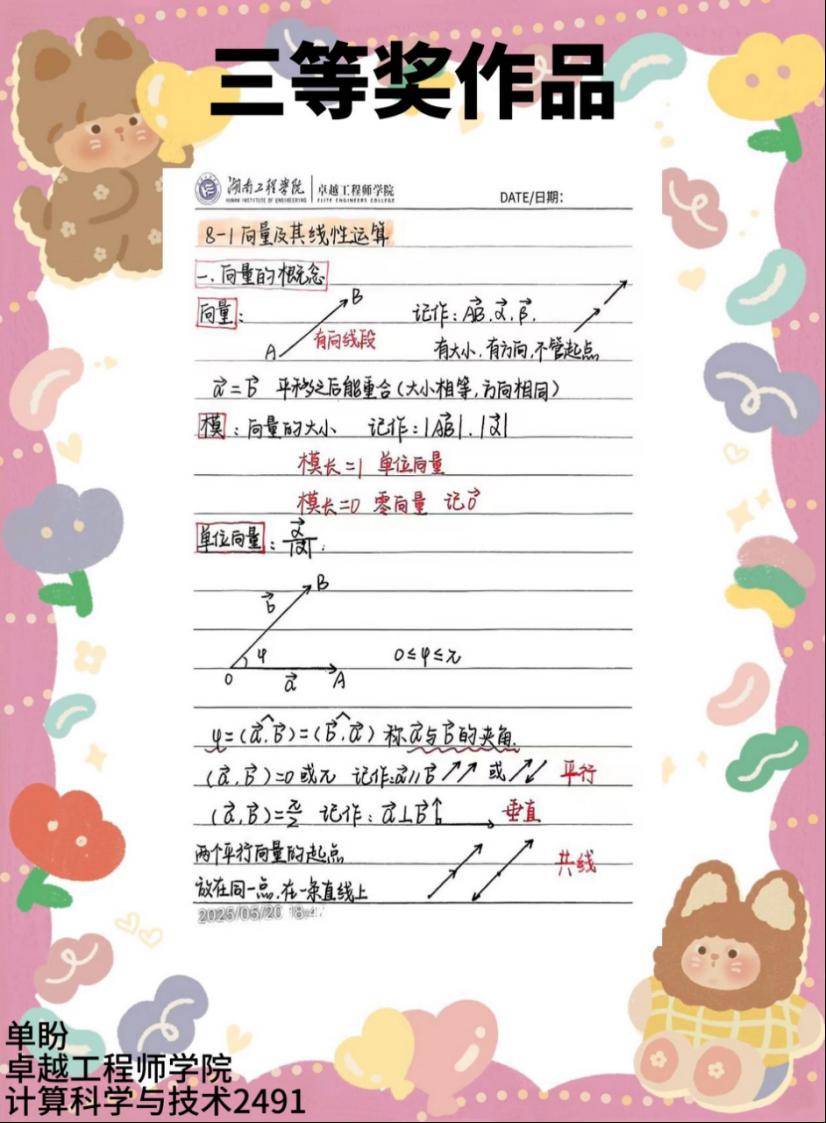 三等奖作品
湖南工程学院 卓越工程师学院 DATE/日期:
HUNAN INSTITUTE OF ENGINEERING ELITE ENGINEERS COLLEGE
8-1 向量及其线性运算
一、向量的概念
向量: A B 有向线段 记作: AB⃗, α⃗, β⃗.
有大小, 有方向, 不管起点
α⃗=b⃗ 平移之后能重合(大小相等, 方向相同)
模: 向量的大小 记作: |AB⃗|, |α⃗|
模长=1 单位向量
模长=0 零向量 记0⃗
单位向量: α⃗/|α⃗|.
b⃗ B
φ 0≤φ≤π
O a⃗ A
φ=(a⃗,b⃗)=(b⃗,a⃗) 称a⃗与b⃗的夹角.
(a⃗,b⃗)=0或π 记作:a⃗∥b⃗ 或 平行
(a⃗,b⃗)=π/2 记作: a⃗⊥b⃗ 垂直
两个平行向量的起点
放在同一点,在一条直线上 共线
2025/05/20
单盼
卓越工程师学院
计算科学与技术2491